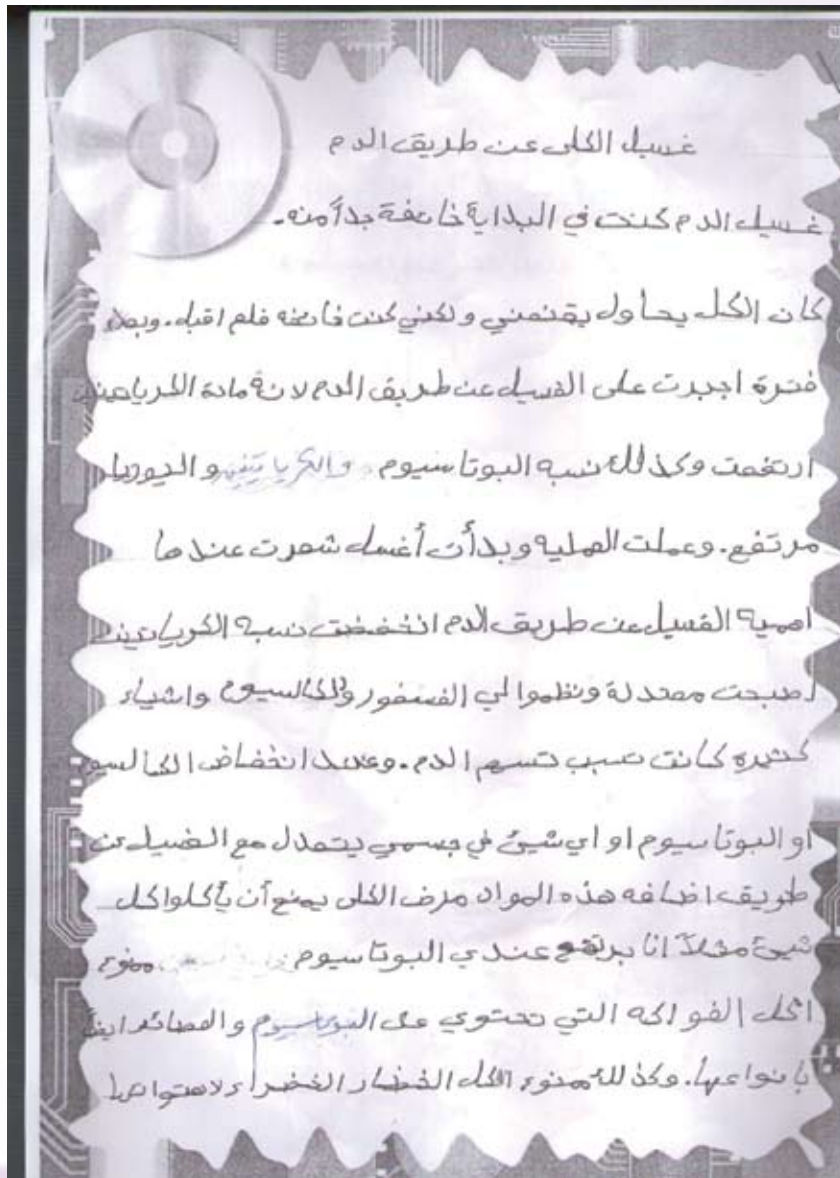 غسيل الكلى عن طريق الدم
غسيل الدم كنت في البداية خائفة جداً منه.
كان الكل يحاول يقنعني ولكني كنت خائفه فلم اقبل. وبعد
فترة اجبرت على الغسيل عن طريق الدم لانه مادة الكرياتينين
ارتفعت وكذلك نسبه البوتاسيوم والكرياتنين واليوريا
مرتفع. وعملت العمليه وبدأت أغسل شعرت عندها
اهمية الغسيل عن طريق الدم انخفضت نسبة الكرياتين
اصبحت معتدلة ونظموا لي الفسفور والكالسيوم واشياء
كثيره كانت تسبب تسمم الدم. وعند انخفاض الكالسيوم
او البوتاسيوم او اي شيئ في جسمي يتعدل مع الغسيل عن
طريق اضافه هذه المواد مرض الكلى يمنع أن يأكلوا كل
شيئ مثلاً انا يرتفع عندي البوتاسيوم ممنوع
اكل الفواكه التي تحتوي على البوتاسيوم والعصائر ايضاً
بانواعها. وكذلك ممنوع اكل الخضار الخضراء لاحتواءها